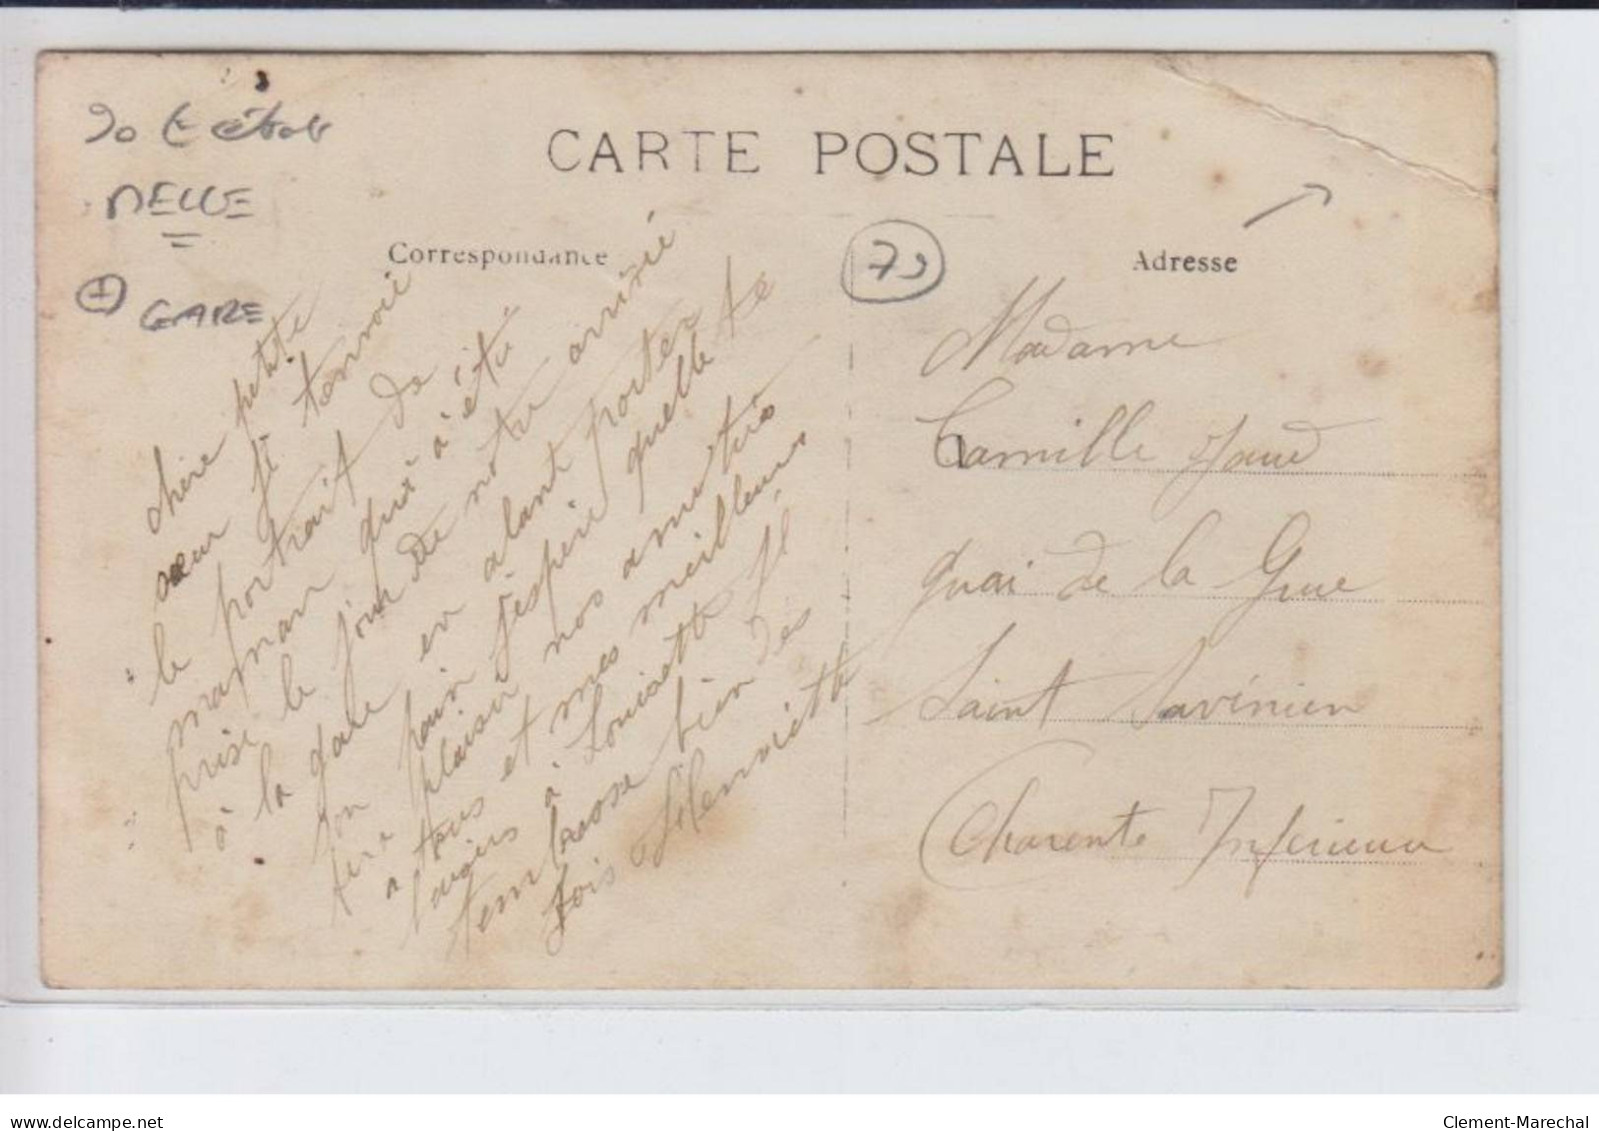 CARTE POSTALE
MELLE
Correspondance
79
Adresse
GARE
chère petite
sœur je tenvoie
le portrait de
maman qui à été
prise le jour de notre arrivée
à la gare en alant porter
son pain j'espère quelle te
fera plaisir nos amitiés
a tous et mes meilleurs
à Louisette Je
tembrasse bien des
fois
Madame
Camille
quai de la Grue
Saint Savinien
Charente Inférieure
delcampe.net
Clement-Marechal